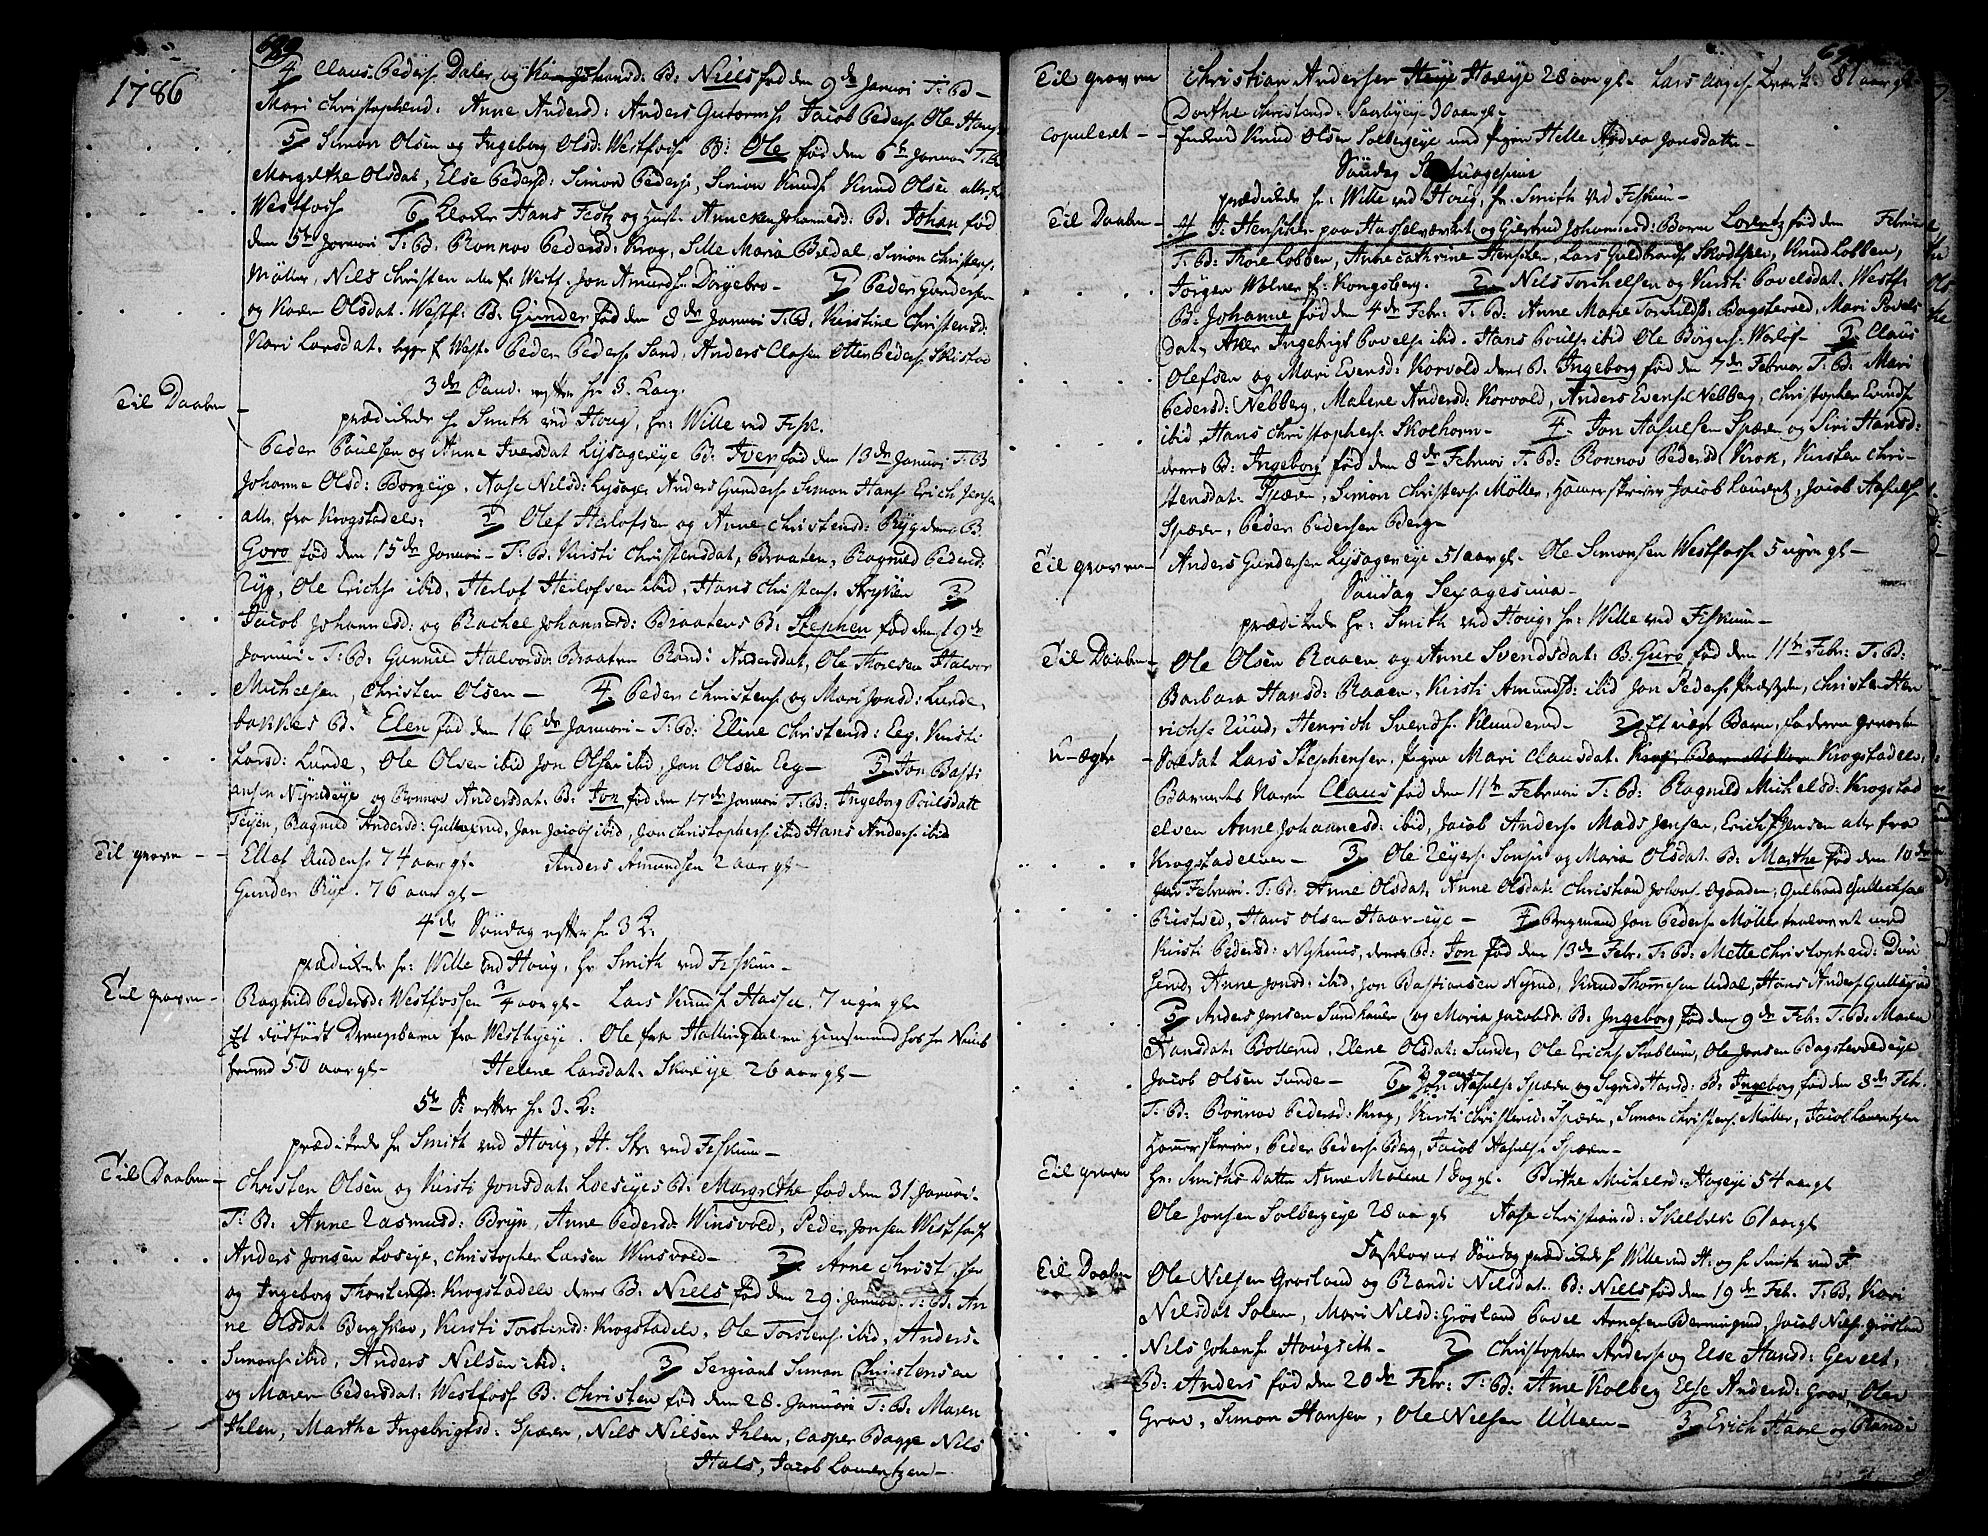 1786
4 Claus Peders: Daler, og Johansd: B: Niels fød den 9de Januri T: B:
Mari Christophersd: Anne Andersd: Anders Gutorms: Jacob Peders: Ole Hans
5 Simon Olsen og Ingeborg Olsd: Westfoss: B: Ole fød den 6te Januri T: B:
Margrethe Olsdat, Else Pedersd: Simon Peders, Simon Knuds: Knud Olsen alle
Westfoss 6 Klocker Hans og Hust: Anneken Johannesd: B: Johan fød
den 5te Januri T: B: Ronnov Pedersd: Krog, Sille Maria Bredal, Simon Christens.
Möller, Nils Christen alle f: Westf. Jon Amunds: Dörgebro - 7 Peder Gundersen
og Karen Olsdat. Westf: B: Gunder fød den 8de Januri T: B: Kirstine Christensd:
Kari Larsdat. West. Peder Peders: Sand, Anders Clasen Otter Peders: Skistad
3de Sønd. efter h: 3. Kong.
Til Daaben - prædikede h: Smith ved Houg, hr: Wille ved Fisk.
Peder Poulsen og Anne Iversdat Lysagereye B: Iver fød den 13de Januri T: B
Johanne Olsd: Borgeye, Aase Nilsd: Lysager, Anders Gunders: Simon Hans: Erich Jensen
alle fra Krogstadelv: 2 Olef Halofsen og Anne Christensd: Ryg deres B.
Goro fød den 15de Januri - T: B: Kirsti Christensdat, Braaten, Ragnild Pedersd:
Ryg, Ole Erichs: ibid, Herlof Herlofsen ibid, Hans Christens: Stryken 3
Jacob Johannesd: og Rachel Johannesd: Braatens B: Stephen fød den 19de
Januri - T: B: Gunnil Halvorsd: Braaten Randi Andersdat, Ole Thoresen Halvor
Michelsen, Christen Olsen - 4 Peder Christens: og Mari Jonsd: Lunde,
bakkes B. Elen fød den 16de Januari - T: B: Eline Christensd: Eeg. Kirsti
Larsd: Lunde, Ole Olsen ibid Jon Olsen ibid, Jan Olsen Eeg - 5 Jon Basti
ansen Nyrudeye og Ronnov Andersdat. B: Jon fød den 17de Januri T: B: Ingeborg Poulsdatt
Teyen, Ragnild Andersd: Gullaxrud, Jan Jacobs: ibid, Jon Christophers: ibid Hans Anders: ibid
Til graven - - Ellef Audens: 74 aar gl. Anders Amundsen 2 aar gl -
Gunder Ryg. 76 aar gl -
4de Söndag efter h: 3 K:
prædikede hr: Wille ved Houg, hr: Smith ved Fiskum -
Til graven - Ragnild Pedersd: Westfossen 3/4 aar gl - Lars Knuds: Hassel 7 ugr gl
Et dödfödt Drengebarn fra Westbyeye. Ole fra Hallingdalen Huusmand hos hr Niels
50 aar gl - Helene Larsdat. Skoreye 26 aar gl -
5te S: efter hr: 3. K:
prædikede hr Smith ved Houg, H. Str: ved Fiskum -
Til Daaben - Christen Olsen og Kirsti Jonsdat: Loeseyes B: Margrethe fød den 31. Januri.
T: B: Anne Rasmusd: Bryn, Anne Pedersd: Winsvold, Peder Jonsen Westfoss:
Anders Jonsen Loseye, Christopher Larsen Winsvold - 2 Arne Christensen
og Ingeborg Thorstensd: Krogstadelv deres B: Niels fød den 29. Januri. T: B: An
ne Olsdat Bergskov, Kirsti Torstensd: Krogstadelv, Ole Torstens: ibid, Anders
Simons: ibid, Anders Nilsen ibid: 3 Sergiant Simon Christensen
og Maren Pedersdat: Westfoss: B: Christen fød den 28. Januari T: B: Maren
Ihlen, Marthe Ingebrigtsd: Spæren, Nils Nilsen Ihlen, Casper Bagge Nils
Hals, Jacob Laurentzen -
Til graven Christian Andersen Haeye 28 aar gl - Lars Aages: 81 aar gl -
Dorthe Christensd: Saasbyeye 30 aar gl -
copuleret - - Knud Olsen Solbergeye und pigen Helle Jonsdatter -
Söndag Septuagesima
prædikede hr: Wille ved Houg, hr. Smith ved Fiskum -
Til Daaben - J: Hensker paa Hasselværket og Giertrud Johannesd: Børn Lorentz fød den Februi
T: B: Thore Lobben, Anne Cathrine Hensken, Lars Guldbrands: Skodtselv, Knud Lobben,
Jorgen Wolner f: Kongsberg. 2 Nils Torchelsen og Kirsti Povelsdat. Westf:
B: Johanne fød den 4de Febr: T: B: Anne Marie Bagstevold, Mari Povels
dat, Ingebrigt Povels: ibid. Hans Pouls: ibid Ole Börges: - 3 Claus
Olefsen og Mari Evensd: Korvold deres B. Ingeborg fød den 7de Februar T: B: Mari
Pedersd: Nebberg, Malene Andersd: Korvold, Anders Evens: Nebberg, Christopher Evens:
ibid, Hans Christophers: Skolhorn - 4 Jon Aasulsen Spæren og Siri Hansd:
deres B: Ingeborg fød den 8de Februri T: B: Ronnov Pedersd Krok, Kirsten Chri-
stensdat. Spæren, Simon Christens: Möller, Hamerskriver Jacob Laurent, Jacob Aasuls:
Spæren, Peder Pedersen Berg -
Til graven - Anders Gundersen Lysagereye 51 aar gl - Ole Simonsen Westfoss: 5 ugr gl -
Söndag Sexagesima -
prædikede hr: Smith ved Houg, hr: Wille ved Fiskum -
Til Daaben - Ole Olsen Raaen og Anne Svendsdat: B: Guro fød den 11te Febr: T: B:
Barbara Hansd: Raaen, Kirsti Amundsd: ibid Jon Peders: Christen Hen
richs: Ruud, Henrich Svends: Klunderud - 2 Et uægt Barn, faderen
U-ægte - Soldat Lars Stephensen, pigen Mari Clausdat. Krogstadelv.
Barnets Navn Claus fød den 11te Februri T: B: Ragnild Michelsd: Krogstad
elven Anne Johannesd: ibid, Jacob Anders: Mads Jensen, Erich Jensen alle fra
Krogstadelven - 3 Ole Reyers: og Maria Olsdat. B: Marthe fød den 10de
Februri. T: B: Anne Olsdat, Anne Olsdat: Christian Johans: Guldbrand Gullichsen
Ristved, Hans Olsen Haareeye - 4 Bergmand Jon Peders: Möller ved
Kirsti Pedersd: Nyhuus, deres B: Jon fød den 13de Febr. T: B: Mette Christophersd: Dun
serud, Anne Jonsd: ibid, Jon Bastiansen Nyrud, Knud Thomesen Uldal, Hans Anders: Gullaxrud
5 Anders Jonsen Sundhauer og Maria Jacobsd: B: Ingeborg fød den 9de Feb: T: B: Maren
Hansdat: Bollerud, Elene Olsdat: Sunde, Ole Erichs: Stablum, Ole Jonsen Bagstevoldeye
Jacob Olsen Sunde - 6 Jon Aasuls: Spæren og Sigrid Hansd: B: Ingeborg fød den 8de Feb.
T: B: Ronnov Pedersd: Krog, Kirsti Christensd: Spæren, Simon Christens: Möller, Jacob Laurentzen
Hamerskriver, Peder Peders: Berg, Jacob Aasuls: Spæren -
Til graven hr: Smiths Datter Anne Malene 1 Dag gl. Birthe Michelsd: Hageye 54 aar gl
Ole Jonsen Solbergeye 28 aar gl Aase Christiansd: Skelbek 61 aar gl
Fastelavns Söndag prædikede hr Wille ved H: og hr Smith ved F
Til Daaben Ole Nilsen Grosland og Randi Nilsdat. B: Niels fød den 19de Feb. T: B: Kari
Nilsdat Solem, Mari Nilsd: Grösland Povel Arnesen Berningrud, Jacob Nils: Grösland
Nils Johans: Hougseth - 2 Christopher Anders: og Else Hansd: Gevelt,
B: Anders fød den 20de Febr: T: B: Anne Kolberg Else Andersd: Grav, Oles
Grav, Simon Hansen, Ole Nielsen Ulleren - 3 Erich Haare og Randi